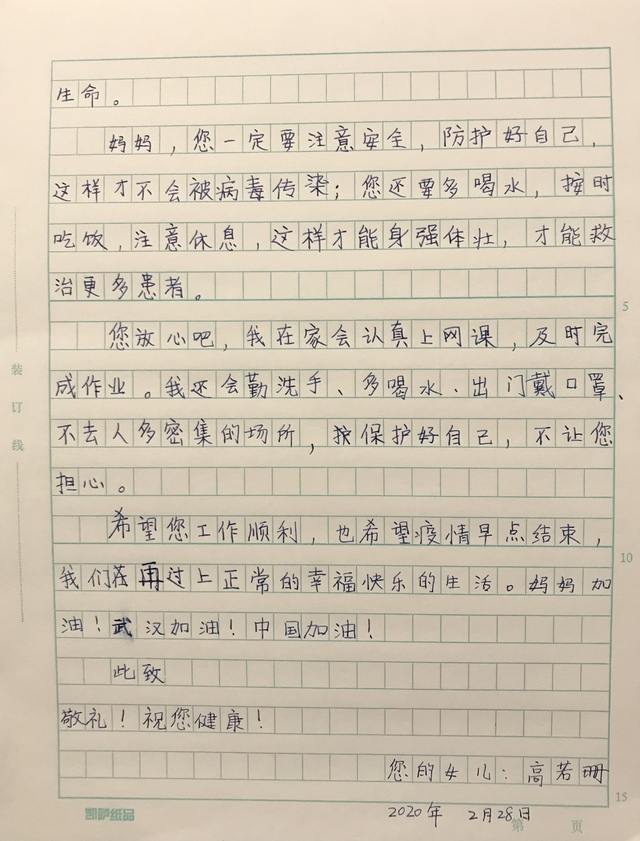 生命。
妈妈，您一定要注意安全，防护好自己，
这样才不会被病毒传染；您还要多喝水，按时
吃饭，注意休息，这样才能身强体壮，才能救
治更多患者。
5
您放心吧，我在家会认真上网课，及时完
成作业。我还会勤洗手、多喝水、出门戴口罩、
不去人多密集的场所，我保护好自己，不让您
担心。
希望您工作顺利，也希望疫情早点结束，
10
我们再过上正常的幸福快乐的生活。妈妈加
油！武汉加油！中国加油！
此致
敬礼！祝您健康！
您的女儿：高若珊
15
2020年 2月28日
凯萨纸品
第 页
装订线